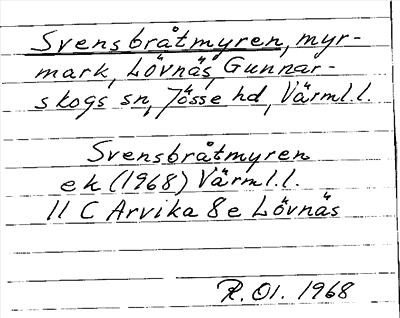 Svensbråtmyren, myr-
mark, Lövnäs, Gunnar-
skogs sn, Jösse hd, Värml.l.
Svensbråtmyren
ek (1968) Värml.l.
11 C Arvika 8e Lövnäs
R. Ol. 1968